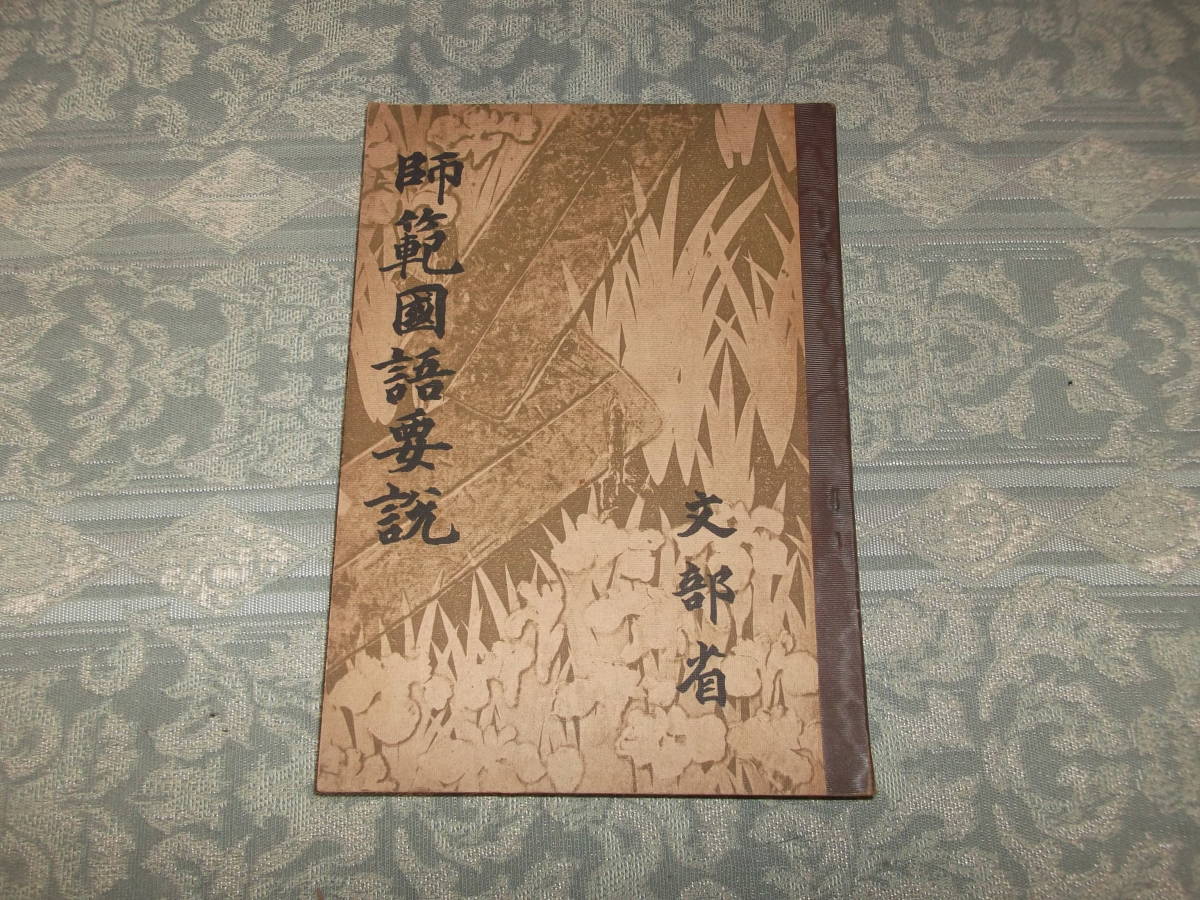 師範國語要説
文部省